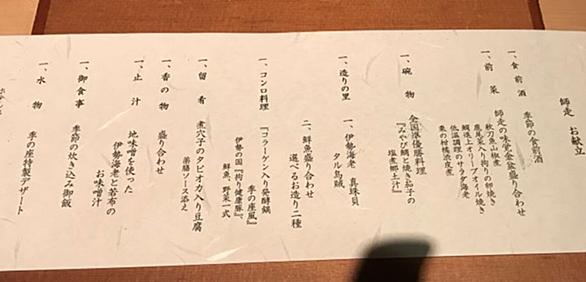 師走 お献立
一、食前酒
季節の食前酒
一、前菜
師走の味覚金盆盛り合わせ
秋刀魚山椒煮
鹿尾菜入り拘りの卵焼き
鯛道上オリーブオイル焼き
低温調理のサラダ海老
栗の柑橘渋皮煮
一、碗物
全国準優勝料理
『みやび鯛と焼き茄子の
塩煮郷土汁』
一、造りの里
一、伊勢海老 真珠貝
タル烏賊
二、鮮魚盛り合わせ
選べるお造り二種
一、コンロ料理
『コラーゲン入り発酵鍋
季の座風』
伊勢の国『拘り健康豚』、
鮮魚、野菜一式
一、留肴
煮穴子のタピオカ入り豆腐
薬膳ソース添え
一、香の物
盛り合わせ
一、止汁
地味噌を使った
伊勢海老と若布の
お味噌汁
一、御食事
季節の炊き込み御飯
一、水物
季の座特製デザート